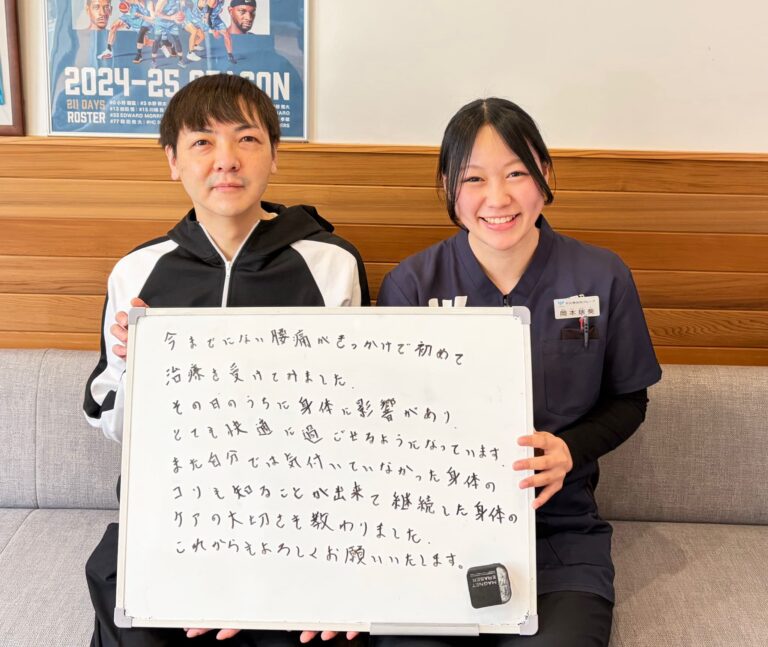 2024-25 SEASON
211 DAYS
ROSTER
岡本
今までにない腰痛がきっかけで初めて
治療を受けてみました.
その日のうちに身体に影響があり.
とても快適に過ごせるようになっています.
また自分では気付いていなかった身体の
コリも知ることが出来て継続した身体の
ケアの大切さも教わりました.
これからもよろしくお願いいたします。
MAGNET
ERASER